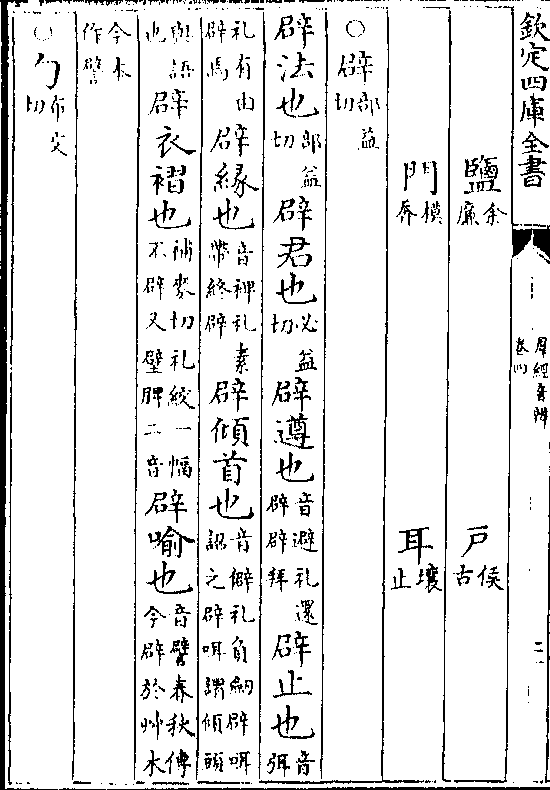 欽定四庫全書
羣經音辨
卷四
鹽余廉 戶侯古
門模奔 耳壤止
○辟部益切
辟法也部益切辟君也必益切辟遵也音避礼還辟辟拜辟止也音弭
礼有由辟焉辟緣也音裨礼素帶終辟辟傾首也音僻礼負劒辟咡詔之辟咡謂傾頭
與語也辟衣褶也補麥切礼絞一幅不辟又壁脾二音辟喻也音譬春秋傳今辟於艸水
今本作譬
○勹布交切